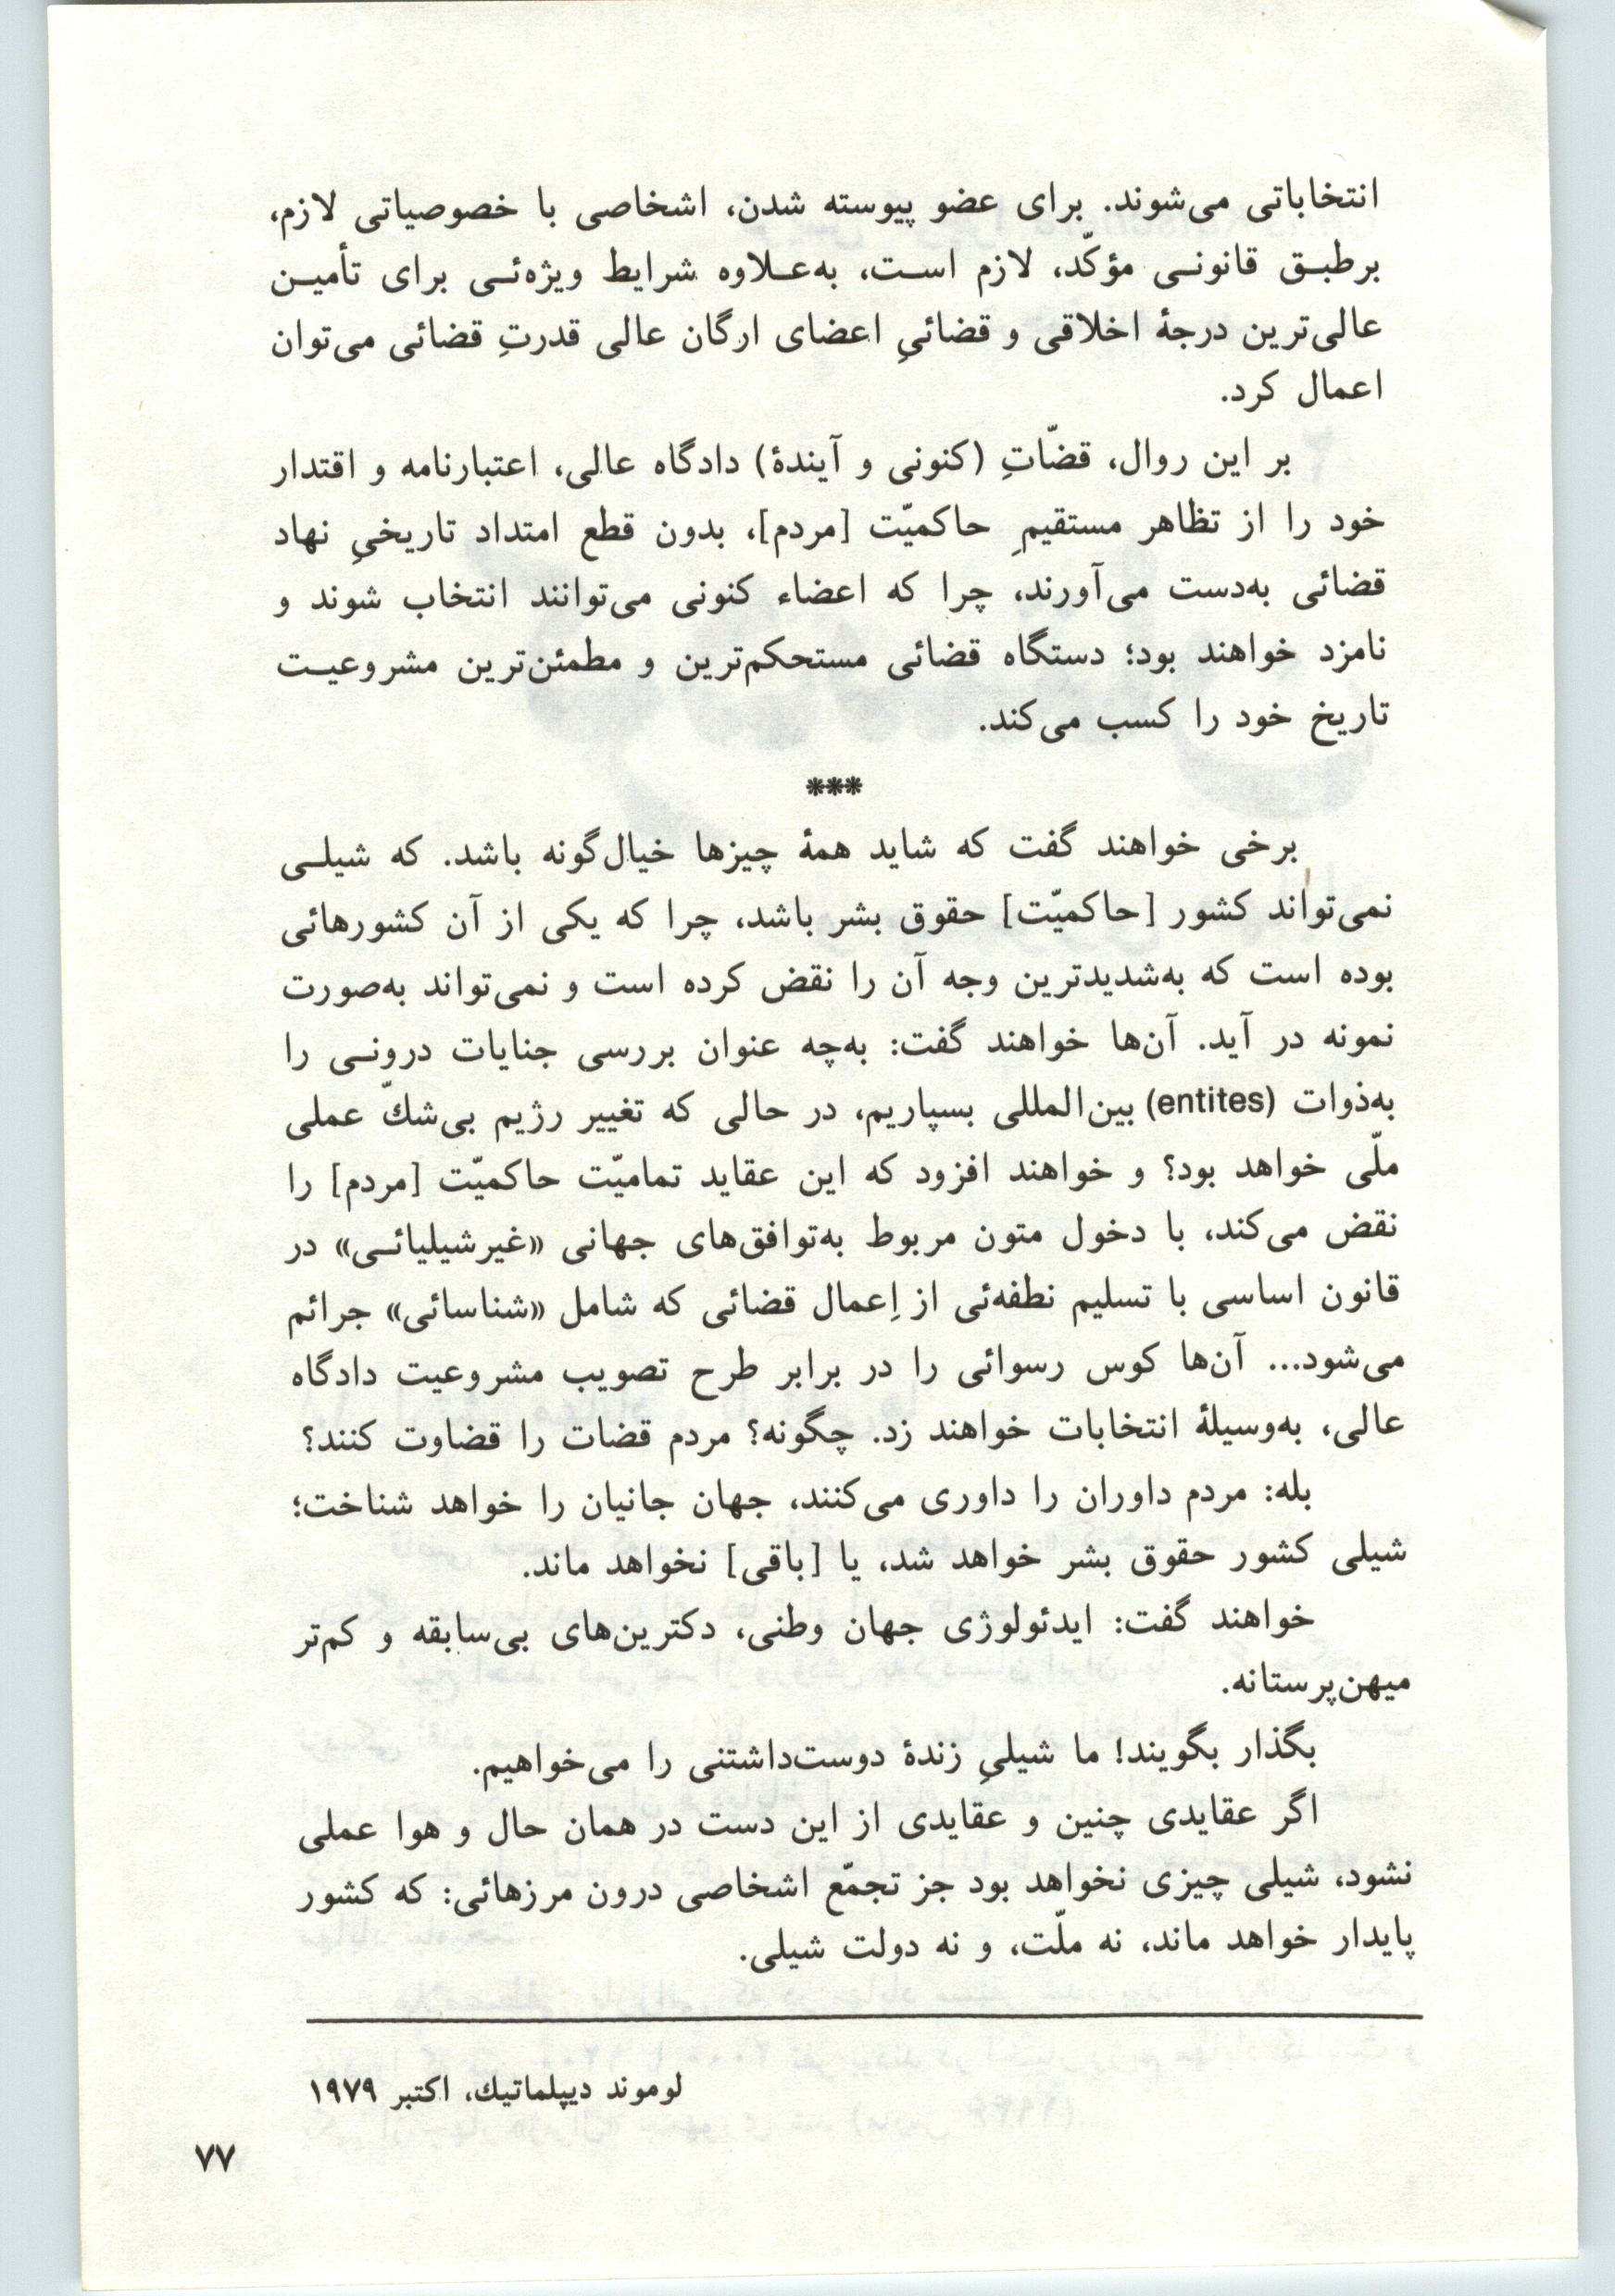 انتخاباتی می‌شوند. برای عضو پیوسته شدن، اشخاصی با خصوصیاتی لازم،
برطبق قانونی مؤکّد، لازم است، به‌علاوه شرایط ویژه‌ئی برای تأمین
عالی‌ترین درجهٔ اخلاقی و قضائیِ اعضای ارگان عالی قدرتِ قضائی می‌توان
اعمال کرد.
بر این روال، قضّاتِ (کنونی و آیندهٔ) دادگاه عالی، اعتبارنامه و اقتدار
خود را از تظاهر مستقیمِ حاکمیّت [مردم]، بدون قطع امتداد تاریخیِ نهاد
قضائی به‌دست می‌آورند، چرا که اعضاء کنونی می‌توانند انتخاب شوند و
نامزد خواهند بود؛ دستگاه قضائی مستحکم‌ترین و مطمئن‌ترین مشروعیت
تاریخ خود را کسب می‌کند.
***
برخی خواهند گفت که شاید همهٔ چیزها خیال‌گونه باشد. که شیلی
نمی‌تواند کشور [حاکمیّت] حقوق بشر باشد، چرا که یکی از آن کشورهائی
بوده است که به‌شدیدترین وجه آن را نقض کرده است و نمی‌تواند به‌صورت
نمونه در آید. آن‌ها خواهند گفت: به‌چه عنوان بررسی جنایات درونی را
به‌ذوات (entites) بین‌المللی بسپاریم، در حالی که تغییر رژیم بی‌شكّ عملی
ملّی خواهد بود؟ و خواهند افزود که این عقاید تمامیّت حاکمیّت [مردم] را
نقض می‌کند، با دخول متون مربوط به‌توافق‌های جهانی «غیرشیلیائی» در
قانون اساسی با تسلیم نطفه‌ئی از اِعمال قضائی که شامل «شناسائی» جرائم
می‌شود... آن‌ها کوس رسوائی را در برابر طرح تصویب مشروعیت دادگاه
عالی، به‌وسیلهٔ انتخابات خواهند زد. چگونه؟ مردم قضات را قضاوت کنند؟
بله: مردم داوران را داوری می‌کنند، جهان جانیان را خواهد شناخت؛
شیلی کشور حقوق بشر خواهد شد، یا [باقی] نخواهد ماند.
خواهند گفت: ایدئولوژی جهان وطنی، دکترین‌های بی‌سابقه و کم‌تر
میهن‌پرستانه.
بگذار بگویند! ما شیلیِ زندهٔ دوست‌داشتنی را می‌خواهیم.
اگر عقایدی چنین و عقایدی از این دست در همان حال و هوا عملی
نشود، شیلی چیزی نخواهد بود جز تجمّع اشخاصی درون مرزهائی: که کشور
پایدار خواهد ماند، نه ملّت، و نه دولت شیلی.
لوموند دیپلماتیك، اکتبر ۱۹۷۹
۷۷